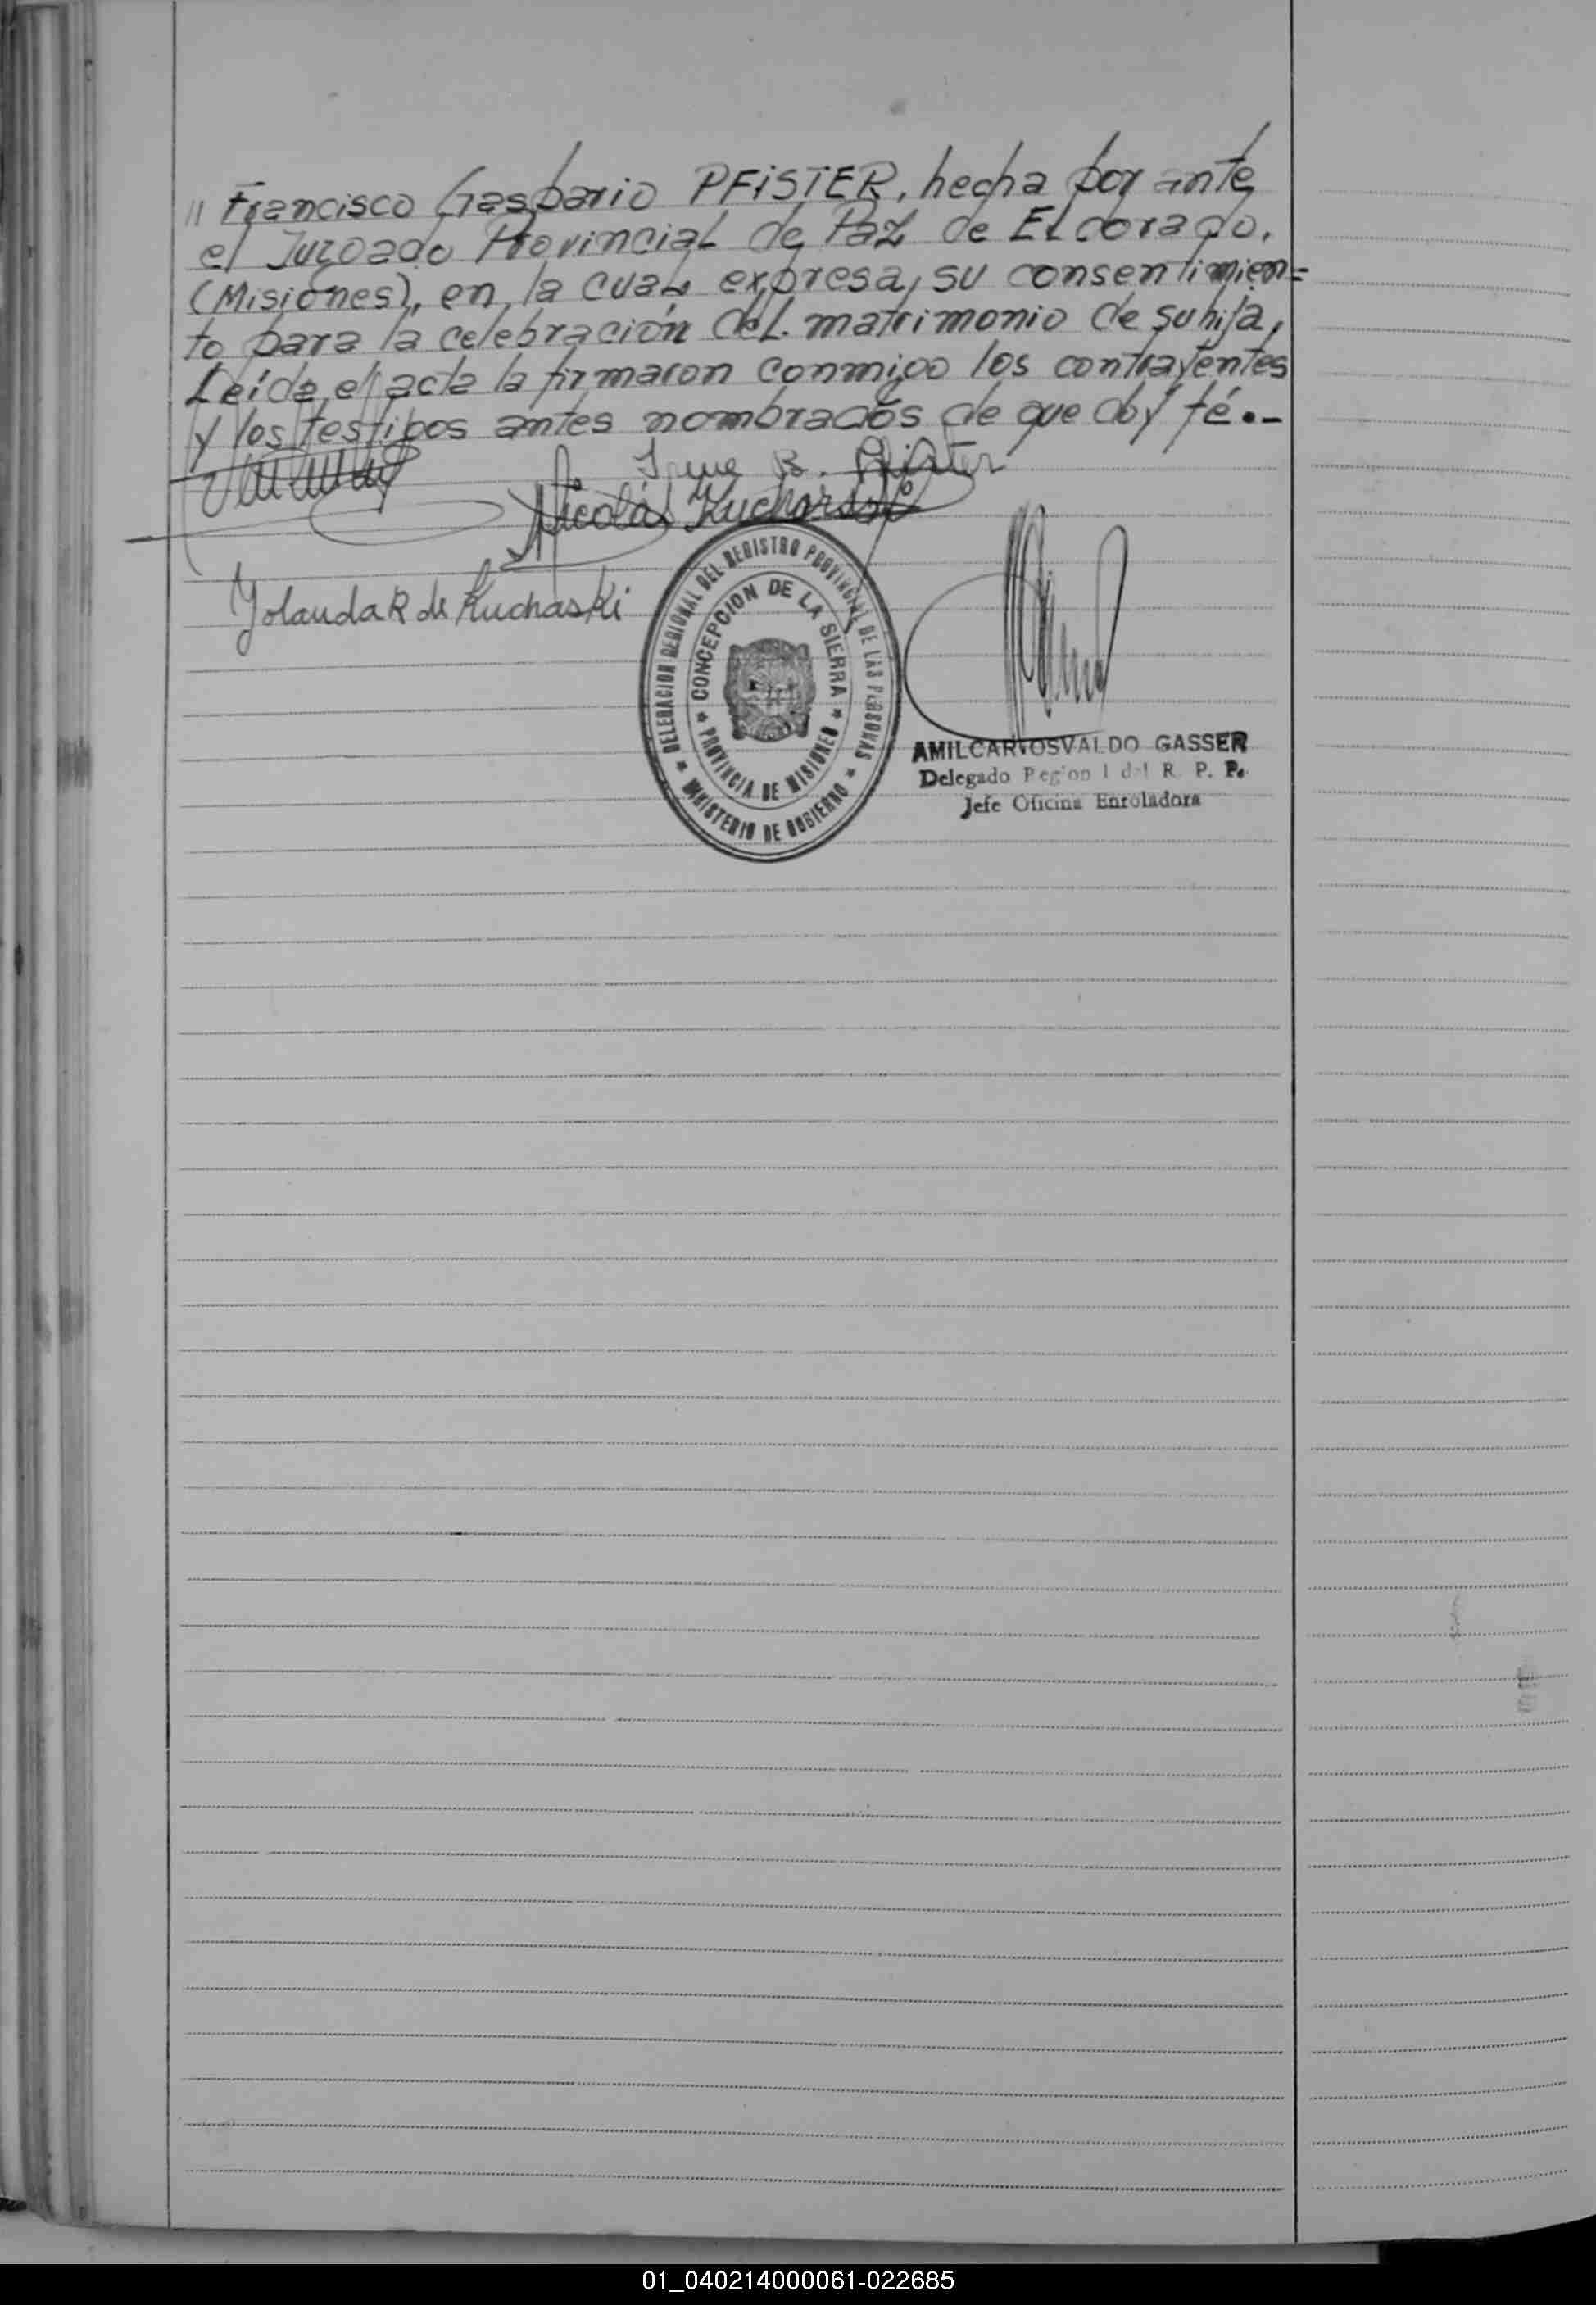 // Francisco Gaspario PFISTER, hecha por ante
el Juzgado Provincial de Paz de Eldorado,
(Misiones), en la cual expresa, su consentimien=
to para la celebración del matrimonio de su hija,
Leída el acta la firmaron conmigo los contrayentes
y los testigos antes nombrados de que doy fé.-
Irene B. Pfister
Nicolás Kucharski
Yolanda R de Kuchaski
DELEGACION REGIONAL DEL REGISTRO PROVINCIAL DE LAS PERSONAS
MINISTERIO DE GOBIERNO
CONCEPCION DE LA SIERRA
PROVINCIA DE MISIONES
AMILCAR OSVALDO GASSER
Delegado Region l del R. P. P.
Jefe Oficina Enroladora
01_040214000061-022685